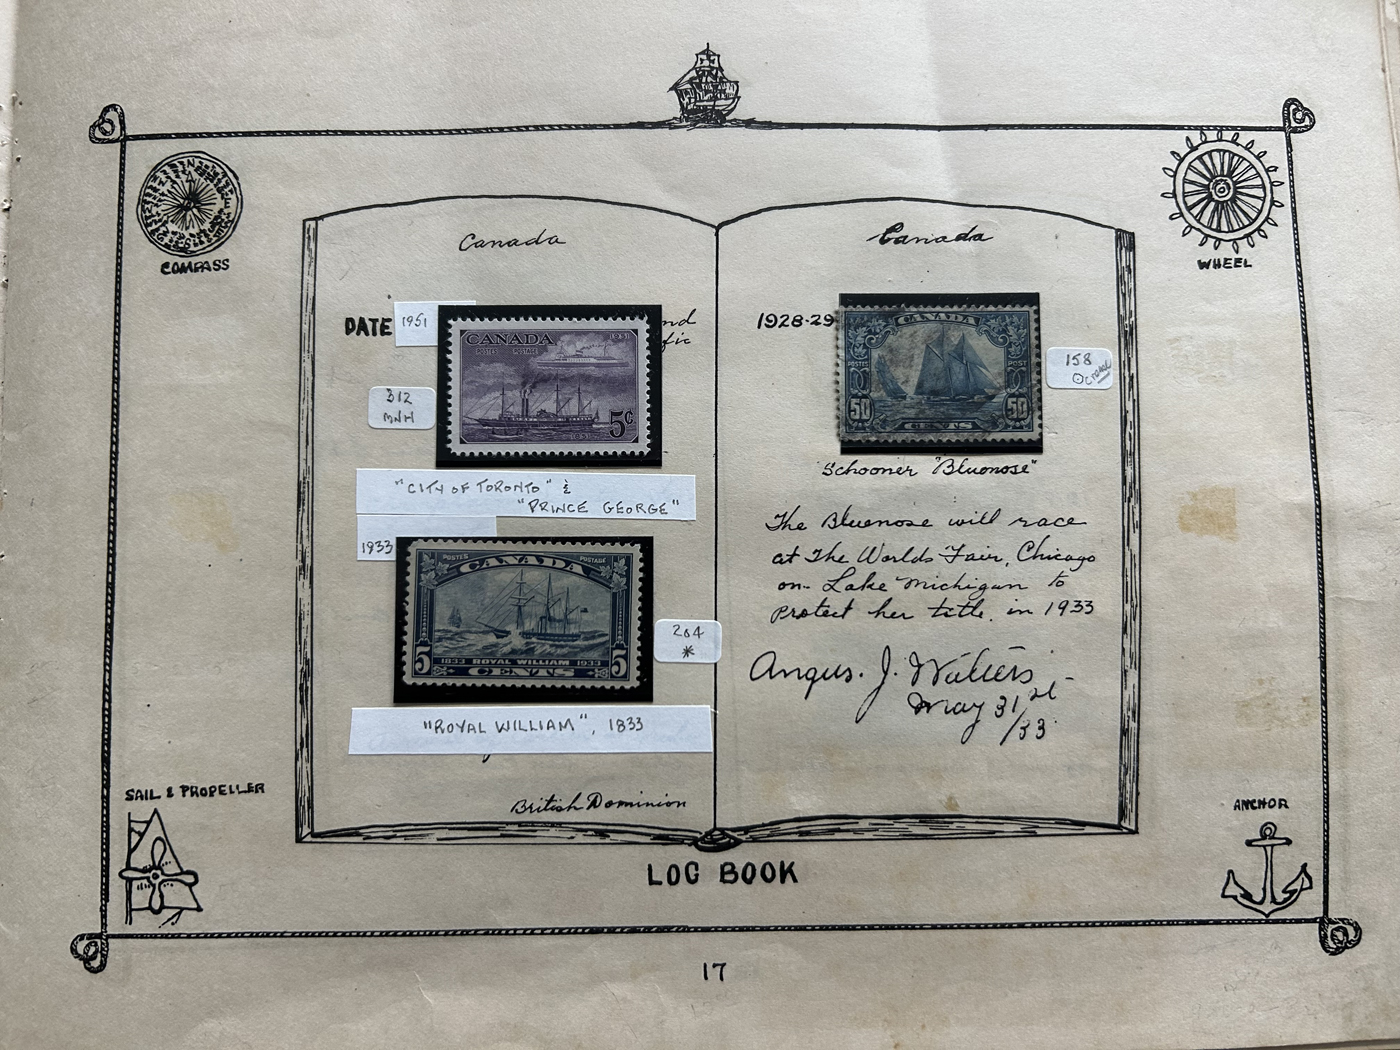 COMPASS
WHEEL
Canada
DATE
1951
nd
fic
312
MNH
CANADA
1951
POSTES POSTAGE
1851
5¢
"CITY OF TORONTO" &
"PRINCE GEORGE"
1933
POSTES CANADA POSTAGE
5 1833 ROYAL WILLIAM 1933 5
CENTS
204
*
"ROYAL WILLIAM", 1833
British Dominion
Canada
1928-29
CANADA
POSTES POST
50 50
CENTS
158
crease
Schooner "Bluenose"
The Bluenose will race
at The Worlds Fair, Chicago
on Lake Michigan to
Protect her title. in 1933
Angus. J. Walters
May 31st
/33
SAIL & PROPELLER
ANCHOR
LOG BOOK
17